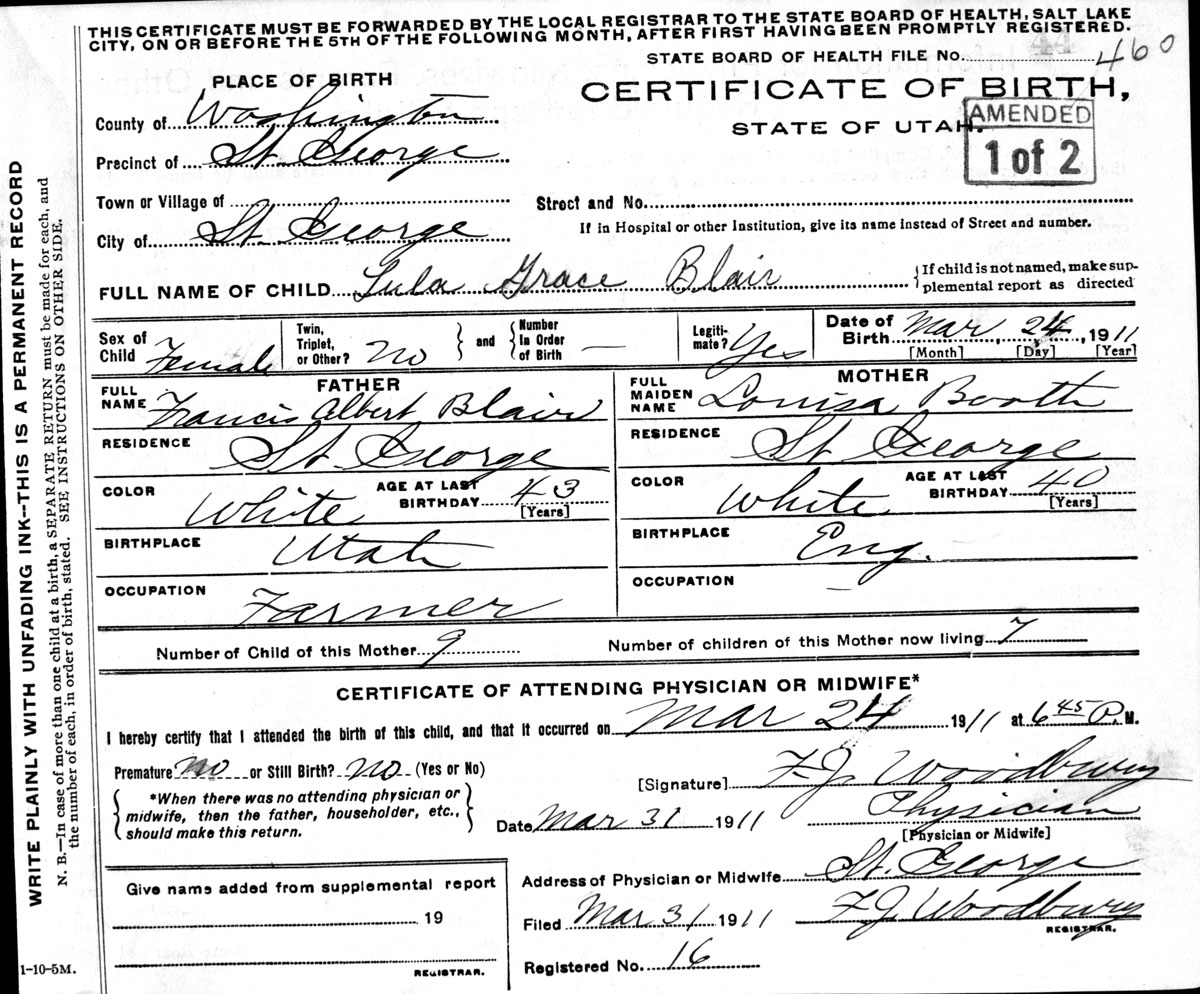 THIS CERTIFICATE MUST BE FORWARDED BY THE LOCAL REGISTRAR TO THE STATE BOARD OF HEALTH, SALT LAKE
CITY, ON OR BEFORE THE 5TH OF THE FOLLOWING MONTH, AFTER FIRST HAVING BEEN PROMPTLY REGISTERED.
STATE BOARD OF HEALTH FILE No. 460
PLACE OF BIRTH
CERTIFICATE OF BIRTH,
STATE OF UTAH.
AMENDED
1 of 2
County of Washington
Precinct of St. George
Town or Village of
Street and No.
City of St. George
If in Hospital or other Institution, give its name instead of Street and number.
FULL NAME OF CHILD Lula Grace Blair
{If child is not named, make sup-
plemental report as directed
Sex of Child Female
Twin, Triplet, or Other? No } and { Number In Order of Birth —
Legiti-mate? Yes
Date of Birth Mar, 24, 1911
[Month] [Day] [Year]
FATHER
FULL NAME Francis Albert Blair
RESIDENCE St. George
COLOR White
AGE AT LAST BIRTHDAY 43
[Years]
BIRTHPLACE Utah
OCCUPATION Farmer
MOTHER
FULL MAIDEN NAME Louisa Booth
RESIDENCE St George
COLOR White
AGE AT LAST BIRTHDAY 40
[Years]
BIRTHPLACE Eng.
OCCUPATION —
Number of Child of this Mother 9
Number of children of this Mother now living 7
CERTIFICATE OF ATTENDING PHYSICIAN OR MIDWIFE*
I hereby certify that I attended the birth of this child, and that it occurred on Mar 24 1911 at 6 45 P. M.
Premature No or Still Birth? No (Yes or No)
{*When there was no attending physician or
midwife, then the father, householder, etc.,
should make this return.}
[Signature] F.J. Woodbury
Physician
[Physician or Midwife]
Date Mar 31 1911
Address of Physician or Midwife St. George
Filed Mar 31 1911 F.J. Woodbury
REGISTRAR.
Registered No. 16
Give name added from supplemental report
19
REGISTRAR.
1-10-5M.
WRITE PLAINLY WITH UNFADING INK--THIS IS A PERMANENT RECORD
N. B.—In case of more than one child at a birth, a SEPARATE RETURN must be made for each, and
the number of each, in order of birth, stated. SEE INSTRUCTIONS ON OTHER SIDE.